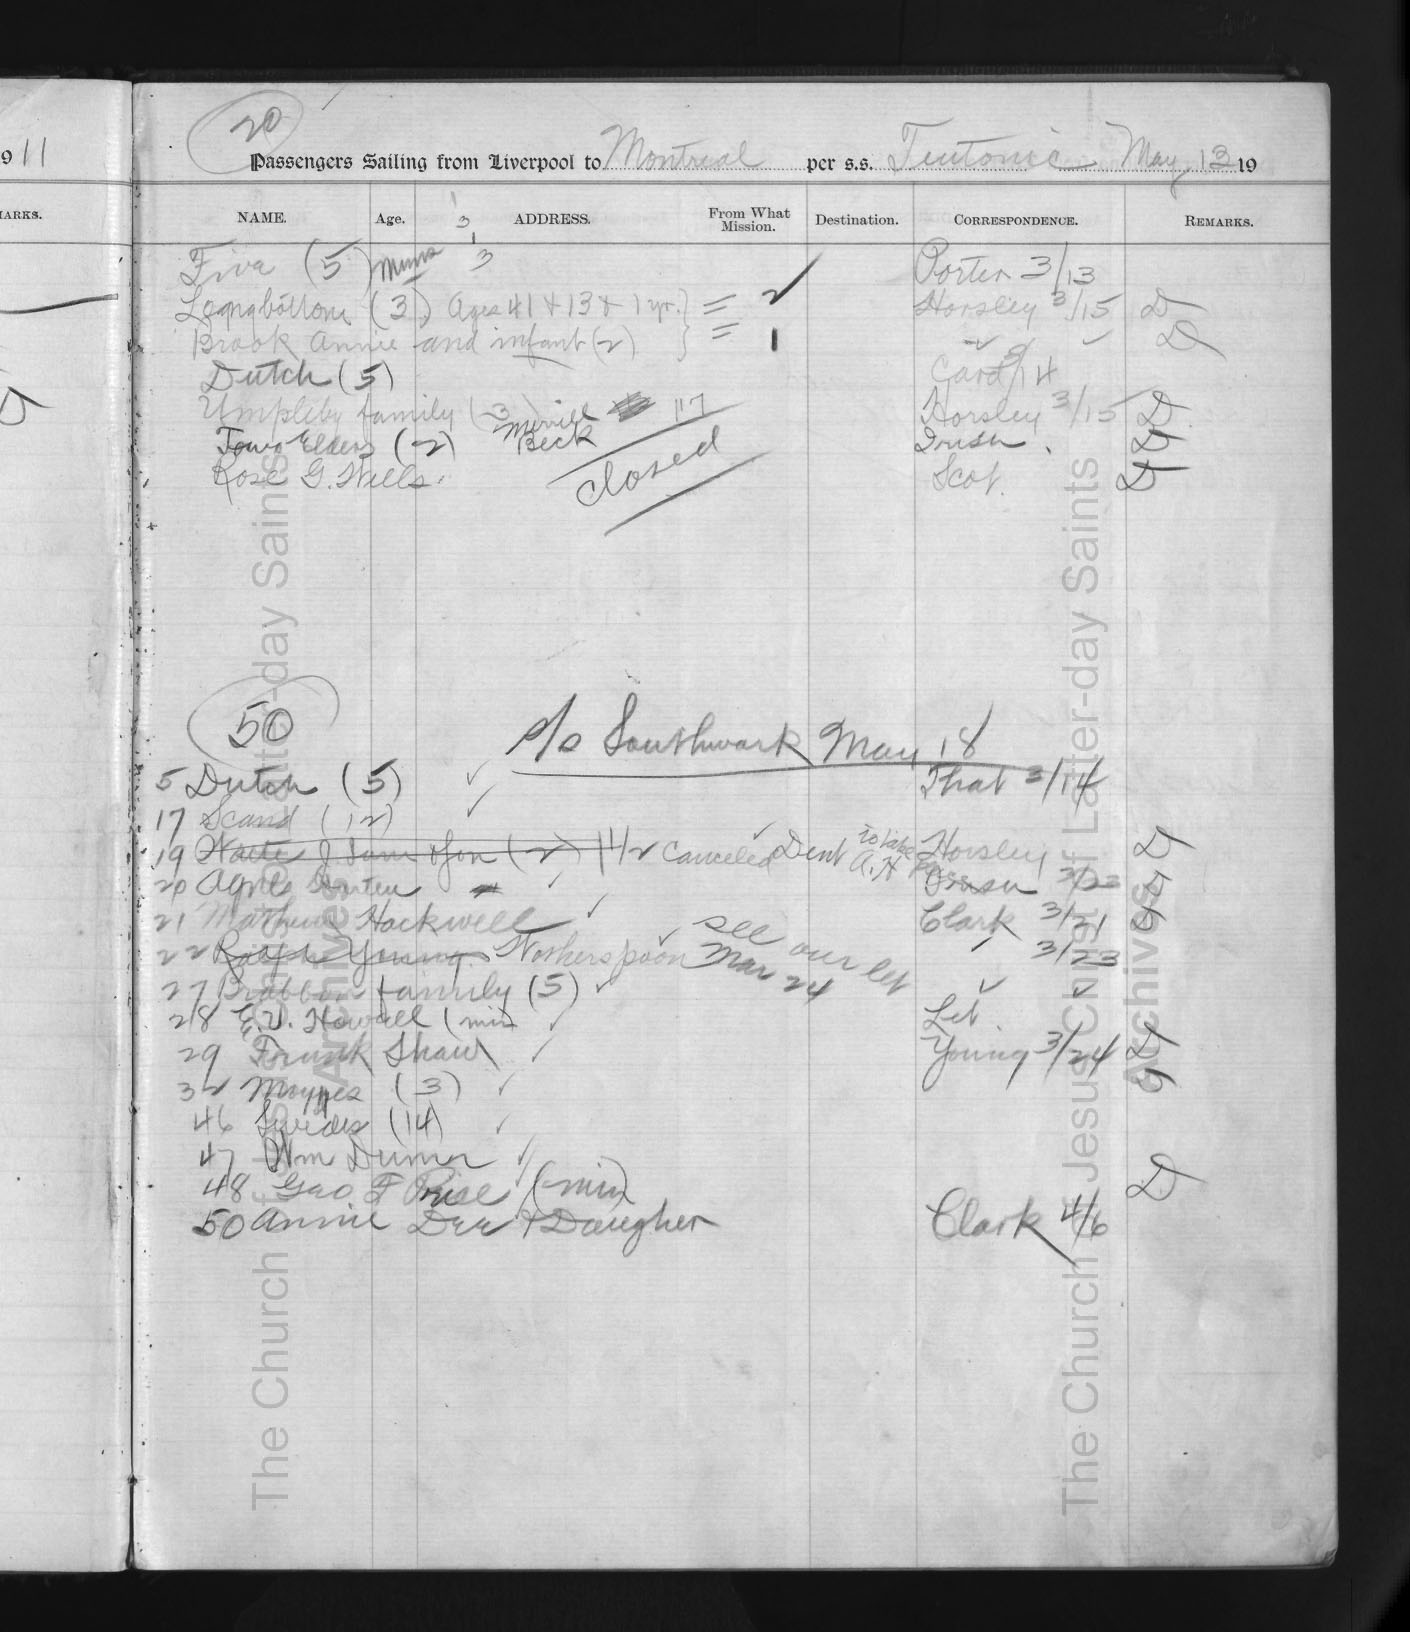 1911
20
Passengers Sailing from Liverpool to Montreal per s.s. Teutonic May 13 19
ARKS.
NAME. Age. ADDRESS. From What Mission. Destination. CORRESPONDENCE. REMARKS.
3
3
Five (5) Porter 3/13
Longbottom (3) Ages 41 + 13 + 1 yr. } = 2 Horsley 3/15 D
Brook Annie and infant (2) } = 1 ✓ ✓ D
Dutch (5) Card 3/14
Umpleby family (3) 17 Horsley 3/15 D
Merrill
Two Elders (2) Beck Irish. D
Rose G. Wells. Scot. D
closed
50
S/S Southwark May 18
5 Dutch (5) ✓ That 3/14
17 Scand (12) ✓
19 (2) 1 1/2 canceled ✓ Dent to take A.H Horsley D
20 Agnes ✓ 3/23 D
21 Mathew Hockwell ✓ Clark 3/21 D
22 Ralph Young. Wotherspoon ✓ see our let Mar 24 ✓ 3/23
27 Brabbon family (5) ✓ ✓ ✓
28 E.V. Howell (min ✓ Let.
29 Frank Shaw ✓ Young 3/24 D
32 Moyes (3) ✓
46 Swedes (14) ✓
47 Wm ✓
48 Geo F (min) D
50 Annie Dee & Daugher Clark 4/6
The Church of Jesus Christ of Latter-day Saints
Archives
The Church of Jesus Christ of Latter-day Saints
Archives